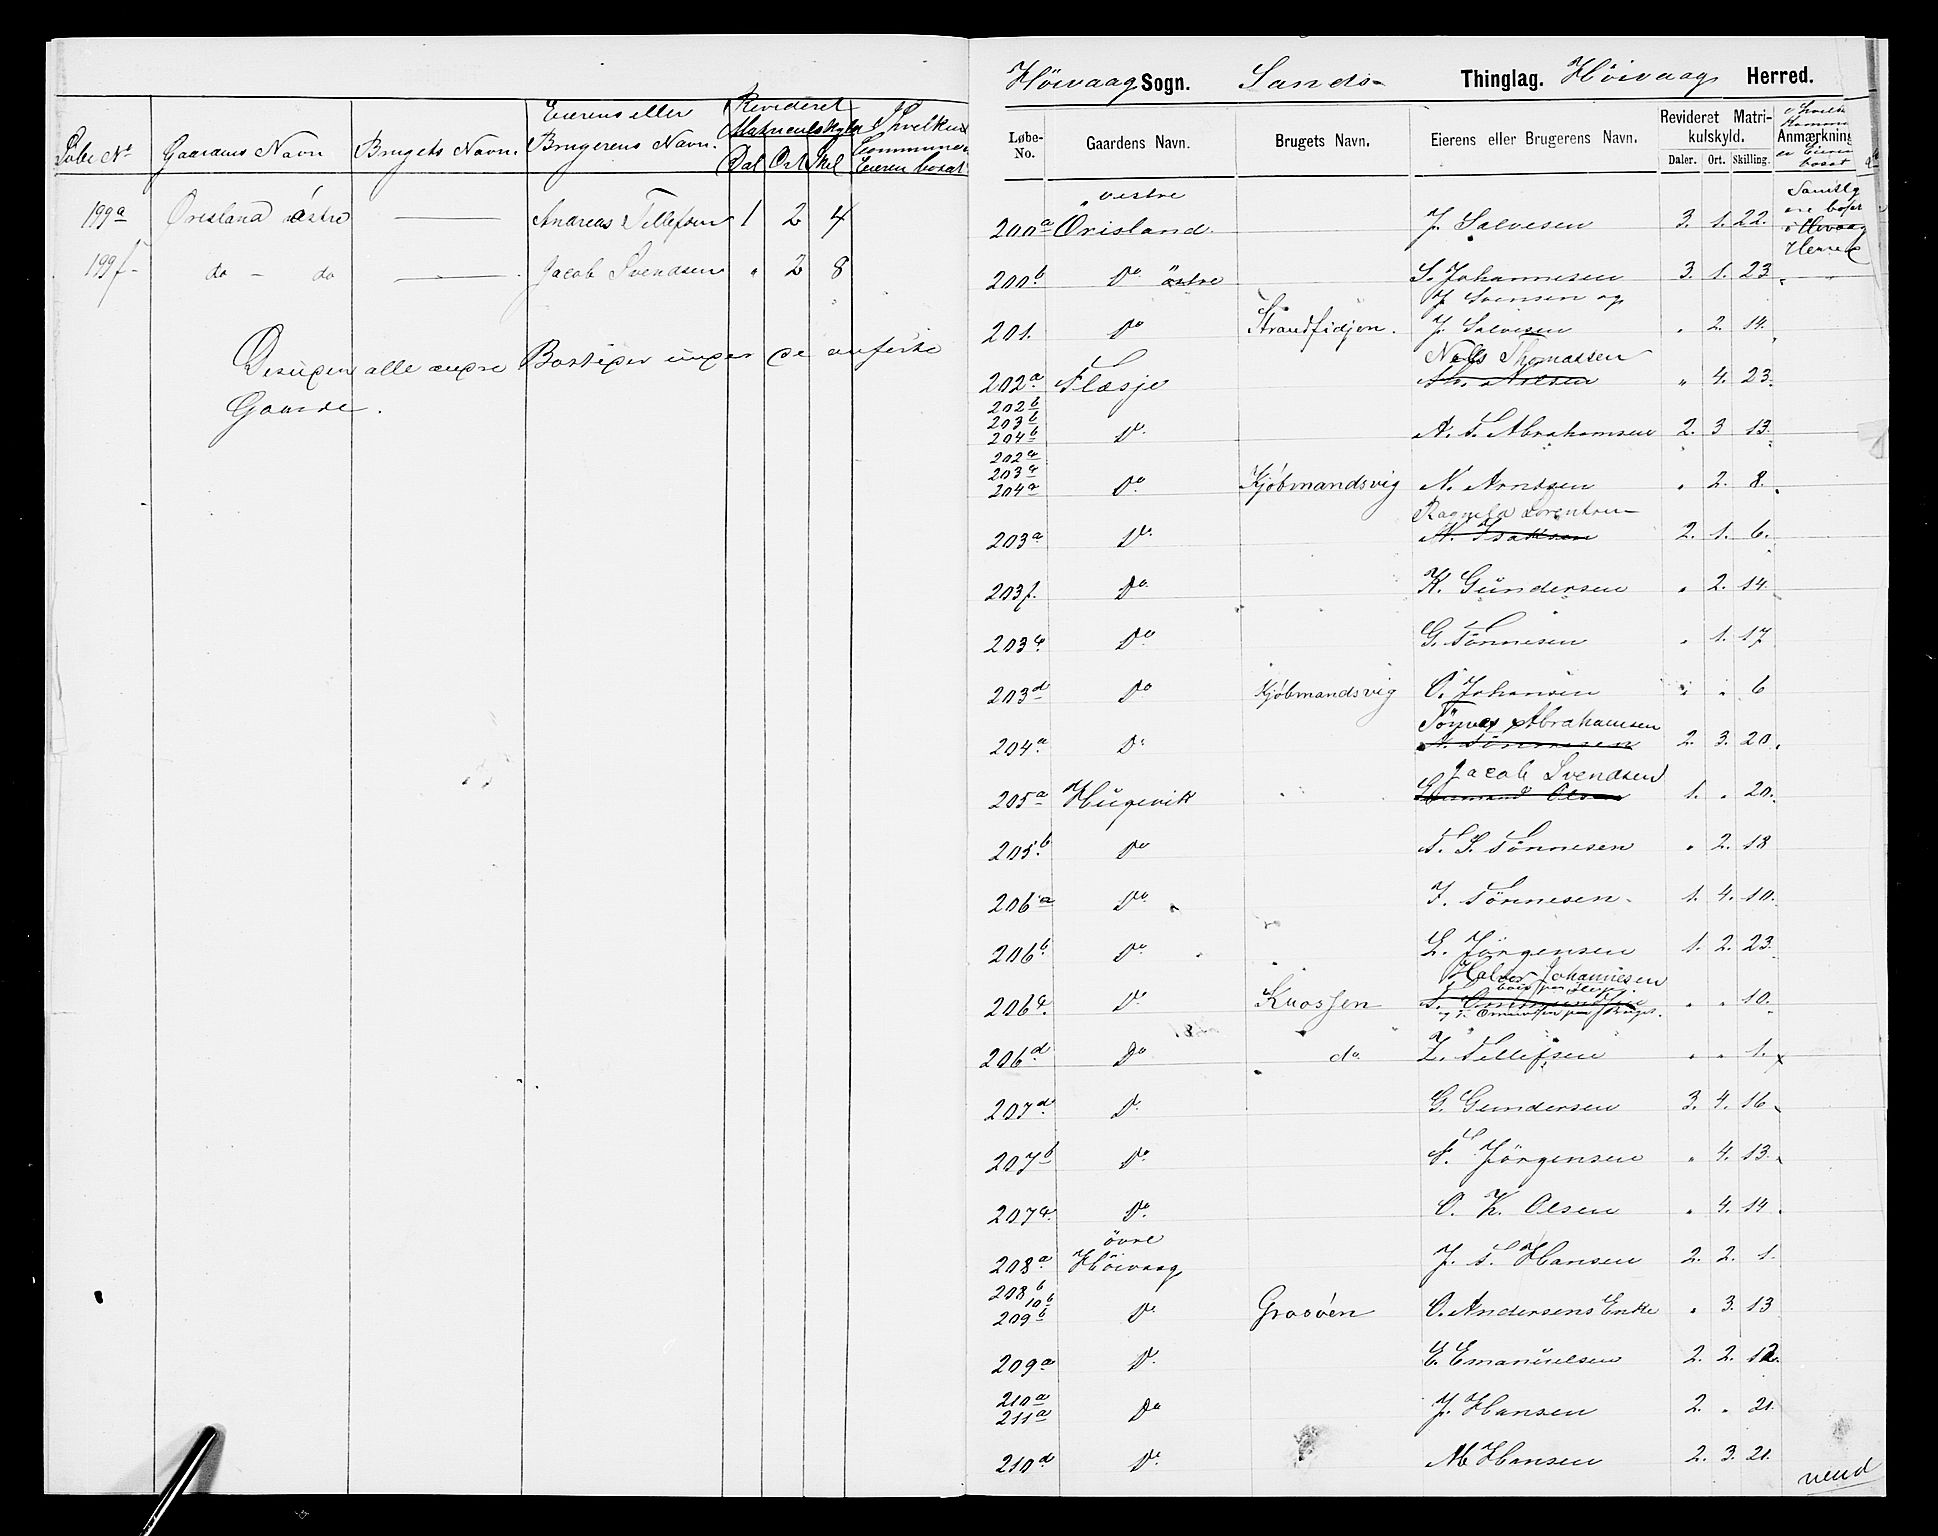 Løbe No Gaardens Navn Brugets Navn. Eierens eller Brugerens Navn. Revideret Matriculskyld Dal Ort Skil I hvilken Commune Eieren bosat
199a Örisland östre — Andreas Tellefsen 1 2 4
199f do — do — Jacob Svendsen " 2 8
Desuden alle andre Bosteder under de anførte
Gaarde.
Höivaag Sogn. Sands- Thinglag. Höivaag Herred.
Løbe-No. Gaardens Navn. Brugets Navn. Eierens eller Brugerens Navn. Revideret Matrikulskyld. Daler. Ort. Skilling. Anmærkning
vestre
200a Örisland. J. Salvesen 3. 1. 22.
200b Do östre S. Johannesen 3. 1. 23
J. Svensen og
201. Do Strandfidjen. J. Salvesen " 2. 14.
Niels Thomassen
202a Flasje Th. Nilsen " 4. 23.
202b
203b
204b Do A. T. Abrahamsen 2. 3 13.
202e
203e
204e Do Kjøbmandsvig N. Arntsen " 2. 8.
Ragnild Lorentsen
203a Do N. Isaksen 2. 1. 6.
203f. Do K. Gundersen " 2. 14.
203c Do G. Tönnesen " 1. 17
203d Do Kjøbmandsvig O. Johansen " " 6
Tönnes Abrahamsen
204a Do A. Tönnesen 2. 3. 20.
Jacob Svendsen
205a Hugevik Gunmund Olsen 1. " 20.
205b Do T. S. Tönnesen " 2. 18
206a Do T. Tönnesen. 1. 4. 10.
206b Do L. Jörgensen 1. 2. 23.
Halvor Johannesen
206c Do Knossen " " 10.
206d Do do L. Tellefsen " " 1.
207d Do G. Gundersen 3. 4. 16
207b Do T. Jörgensen " 4. 13.
207c Do O. K. Olsen " 4. 14.
övre
208a Höivaag J. T. Hansen 2. 2. 1.
208b
10b
209b Do Graaöen O. Andersens Enke " 3. 13
209a Do E. Emanuelsen 2. 2. 12.
210a
211a Do J. Hansen 2. " 21.
210d Do M Hansen 2. 3. 21.
vend